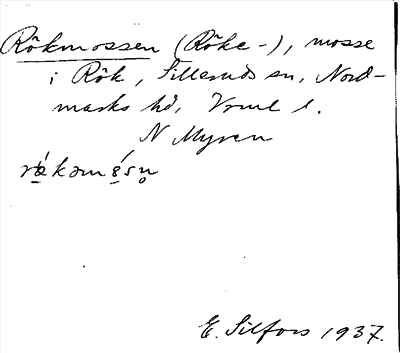 Rökmossen (Röke-), mosse
i Rök, Sillerud sn, Nord-
marks hd, Vrml l.
N Myren
E. Silfors 1937.